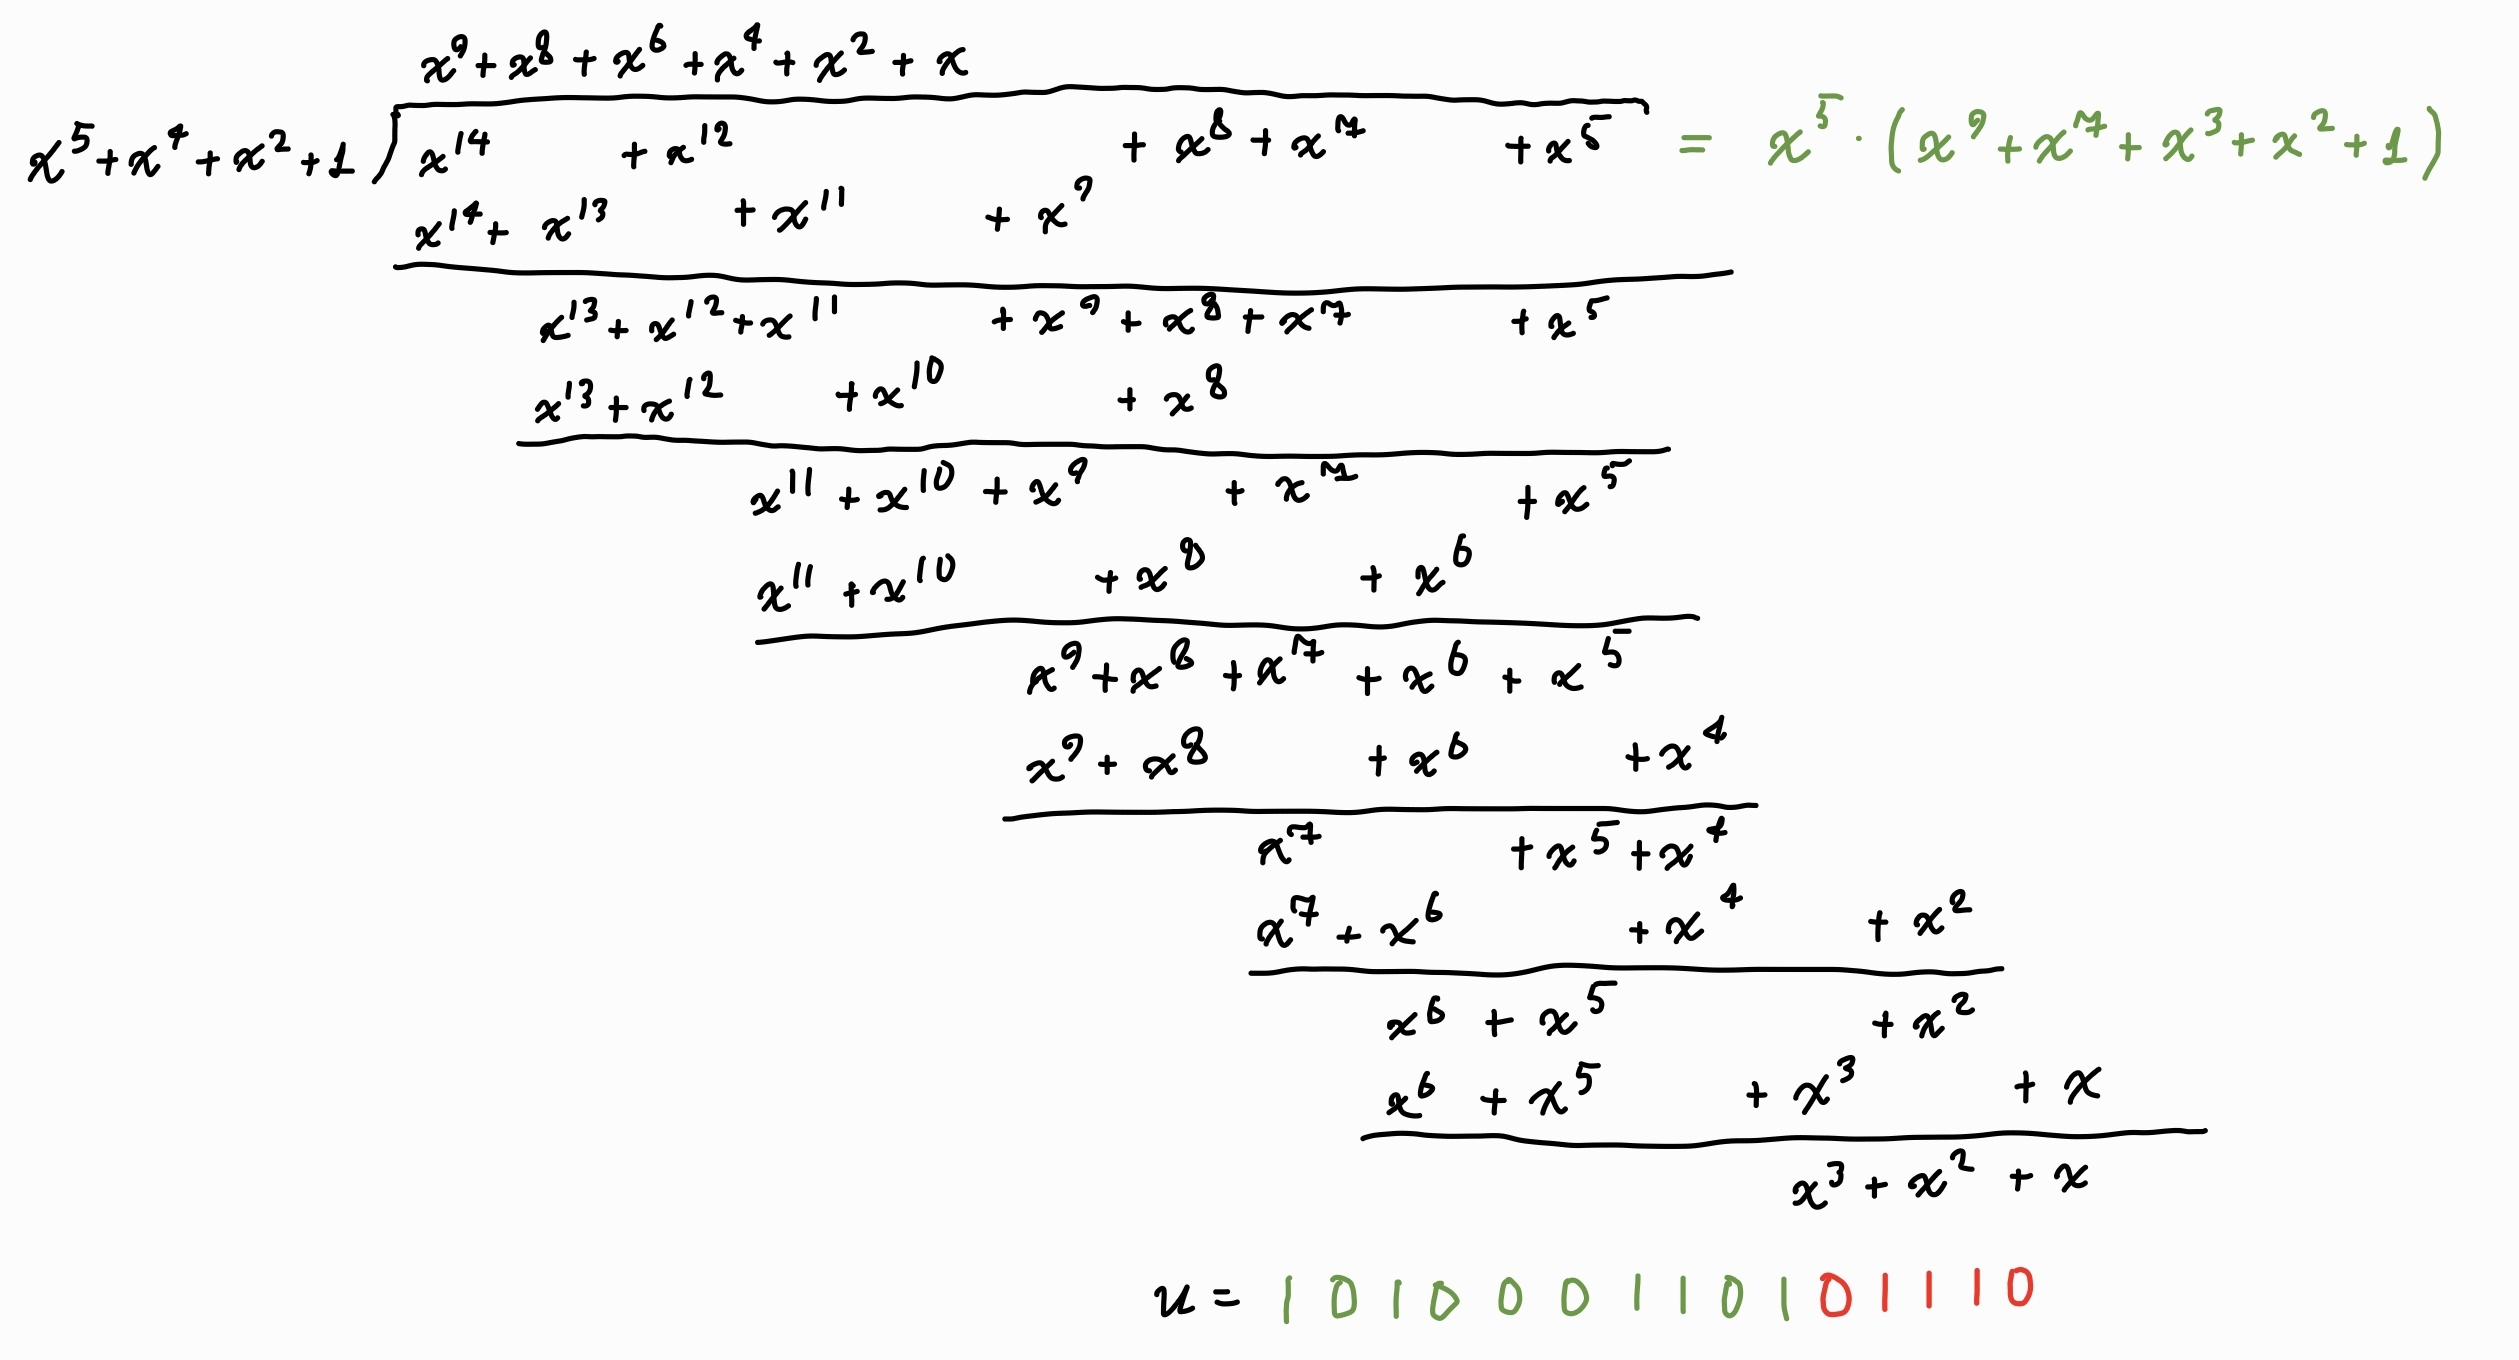 x⁹ + x⁸ + x⁶ + x⁴ + x² + x
x⁵ + x⁴ + x² + 1 ) x¹⁴ + x¹² + x⁸ + x⁷ + x⁵ = x⁵ · (x⁹ + x⁷ + x³ + x² + 1)
x¹⁴ + x¹³ + x¹¹ + x⁹
x¹³ + x¹² + x¹¹ + x⁹ + x⁸ + x⁷ + x⁵
x¹³ + x¹² + x¹⁰ + x⁸
x¹¹ + x¹⁰ + x⁹ + x⁷ + x⁵
x¹¹ + x¹⁰ + x⁸ + x⁶
x⁹ + x⁸ + x⁷ + x⁶ + x⁵
x⁹ + x⁸ + x⁶ + x⁴
x⁷ + x⁵ + x⁴
x⁷ + x⁶ + x⁴ + x²
x⁶ + x⁵ + x²
x⁶ + x⁵ + x³ + x
x³ + x² + x
u = 1 0 1 0 0 0 1 1 0 1 0 1 1 1 0